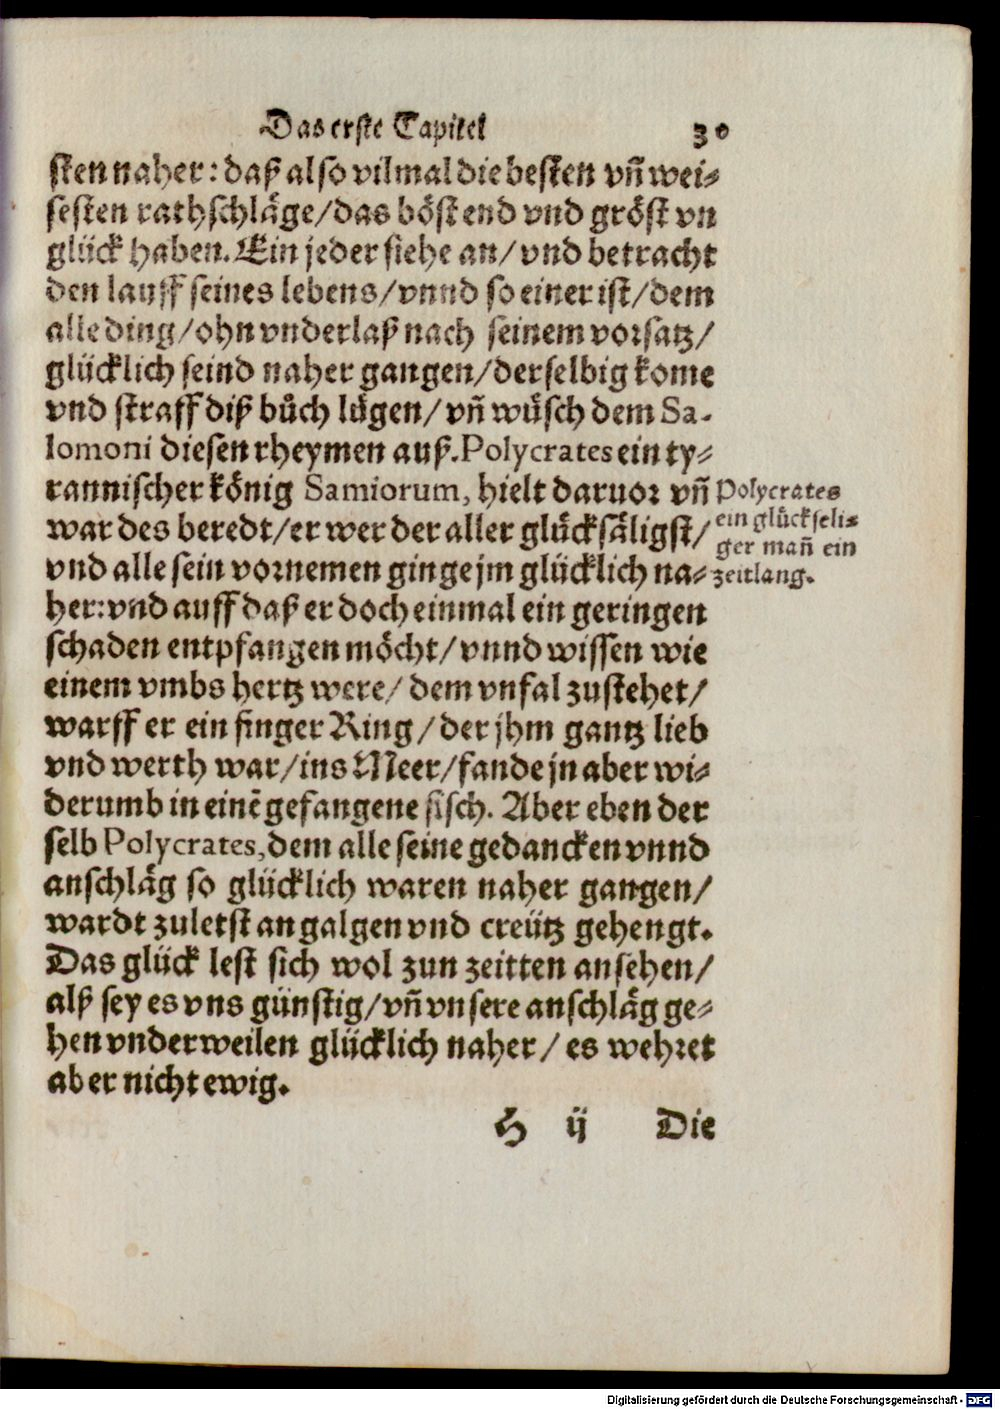 Das erste Capitel 30
sten naher: daß also vilmal die besten vñ wei-
sesten rathschläge/das böst end vnd gröst vn
glück haben. Ein jeder siehe an/ vnd betracht
den lauff seines lebens/vnnd so einer ist/dem
alle ding/ohn vnderlaß nach seinem vorsatz/
glücklich seind naher gangen/derselbig kome
vnd straff diß bůch lügen/ vñ wüsch dem Sa-
lomoni diesen rheymen auß. Polycrates ein ty-
rannischer könig Samiorum, hielt daruor vñ
war des beredt/er wer der aller glücksäligst/
vnd alle sein vornemen ginge jm glücklich na-
her: vnd auff daß er doch einmal ein geringen
schaden entpfangen möcht/ vnnd wissen wie
einem vmbs hertz were/ dem vnfal zustehet/
warff er ein finger Ring/der jhm gantz lieb
vnd werth war/ins Meer/fande jn aber wi-
derumb in einẽ gefangene fisch. Aber eben der
selb Polycrates, dem alle seine gedancken vnnd
anschläg so glücklich waren naher gangen/
wardt zuletst an galgen vnd creütz gehengt.
Das glück lest sich wol zun zeitten ansehen/
alß sey es vns günstig/vñ vnsere anschläg ge-
hen vnderweilen glücklich naher/ es wehret
aber nicht ewig.
Polycrates
ein glückseli-
ger mañ ein
zeitlang.
H ij Die
Digitalisierung gefördert durch die Deutsche Forschungsgemeinschaft - DFG